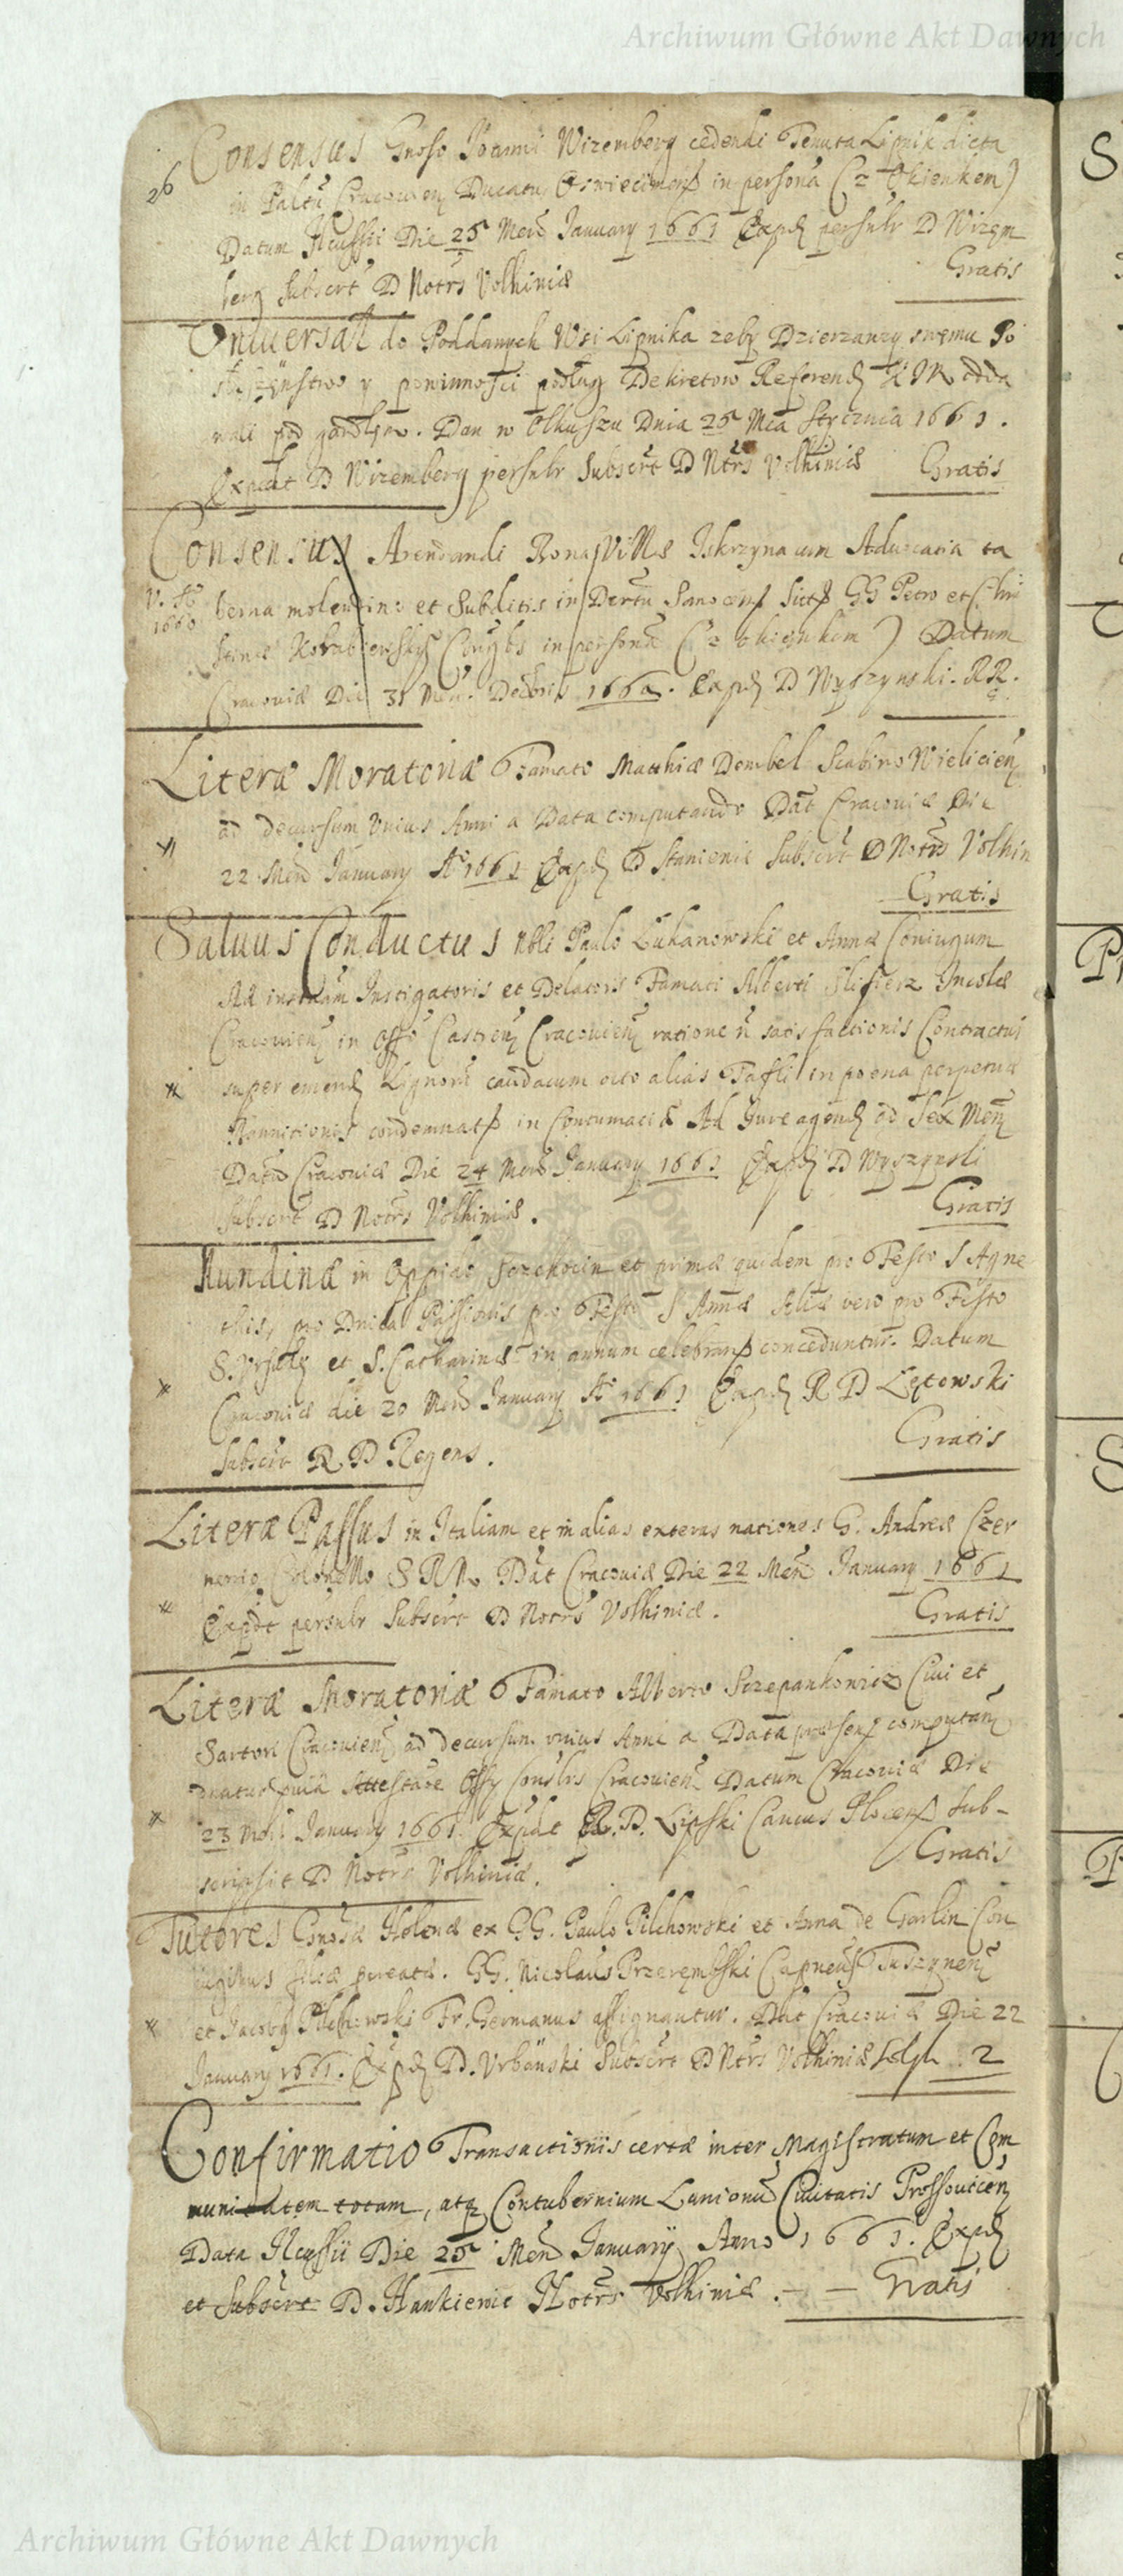 Archiwum Główne Akt Dawnych
26
Consensus Gnoso Joanni Wizemberg cedendi Tenuta Lipnik dicta
in Paltu Cracovien Ducatu Oswiecimens in persona (z Okienkem)
Datum Ilcussii Die 25 Mens January 1661 Exped persulr D Wizem
berg Subscrt D Notrs Volhiniæ Gratis
Uniuersał do Poddanych Wsi Lipnika zeby Dzierzawcy swemu Po
słuszenstwo y powinnosci podług Dekretow Referend KJM odda
wali pod gardłem. Dan w Olkuszu Dnia 25 Mca Stycznia 1661.
Expdt D Wizemberg persulr Subscrt D Ntrs Volhiniæ Gratis
Consensus Arendandi Bona Villæ Iskrzyna cum Aduocatia ta
V. Ao 1660
berna molendino et Subditis in Dertu Sanocens Sitis GG Petro et Chri
stinæ Coniugbs in persona (z okienkem) Datum
Cracoviæ Die 31 Men. Decbris 1660. Exped D Wyszynski. RR.
Literæ Moratoriæ Famato Matthiæ Dombel Scabino Wielicien
ad decursum unius Anni a Data computando Dat Cracoviæ Die
22 Mens January Ao 1661 Exped D Stanienie Subscrt D Notrs Volhin
Gratis
Saluus Conductus Nbli Paulo Lukanowski et Annæ Coniugum
Ad instnam Instigatoris et Delatoris Famati Alberti Slifierz Incolæ
Cracovien in Offo Castren Cracovien ratione n satisfactionis Contractus
super emend Lignorum caudacum octo alias Tafli in poena perpetuæ
condemnats in Contumaciæ Ad Jure agend ad Sex Men
Datum Cracoviæ Die 24 Mens January 1661 Exped D Wyszynski
Subscrt D Notrs Volhiniæ. Gratis
Nundinæ in Oppido Szczekocin et primæ quidem pro Festo S Agne
this, pro Dnica Passionis pro Festo S Annæ Aliæ vero pro Festo
S. Ursulæ et S. Catharinæ in annum celebrans conceduntur. Datum
Cracoviæ die 20 Mens January Ao 1661 Exped R D Lętowski
Subscrt R. D. Regens. Gratis
Literæ Passus in Italiam et in alias exteras nationes G. Andreæ Czer
Colonello SRM. Dat Cracoviæ Die 22 Mens January 1661
Expdt persulr Subscrt D Notrs Volhiniæ. Gratis
Literæ Moratoriæ Famato Alberto Sczepankowicz Ciui et
Sartori Cracovien ad decursum unius Anni a Data præsens computan
Attestaoe Offy Conslris Cracovien Datum Cracoviæ Die
23 Mens January 1661. Expdt R. D. Lipski Cancus Plocens Sub-
scripsit D Notrs Volhiniæ. Gratis
Tutores Gnosæ Helenæ ex GG. Paulo Pilchowski et Anna de Garlin Con
iugibus filiæ procreatæ. GG. Nicolaus Przerembski Capneus Tuszynen
et Jacobg Pilchowski Fr. Germanus assignantur. Dat Cracoviæ Die 22
January 1661. Exped D. Urbanski Subscrt D Ntrs Volhiniæ Solgh 2
Confirmatio Transactionis certæ inter Magistratum et Com
munitatem totam, atq Contubernium Lanionu Ciuitatis Prossouicen
Data Ilcussii Die 25 Mens January Anno 1661. Exped
et Subscrt D. Hankiewic Notrs Volhiniæ. — — Gratis
Archiwum Główne Akt Dawnych